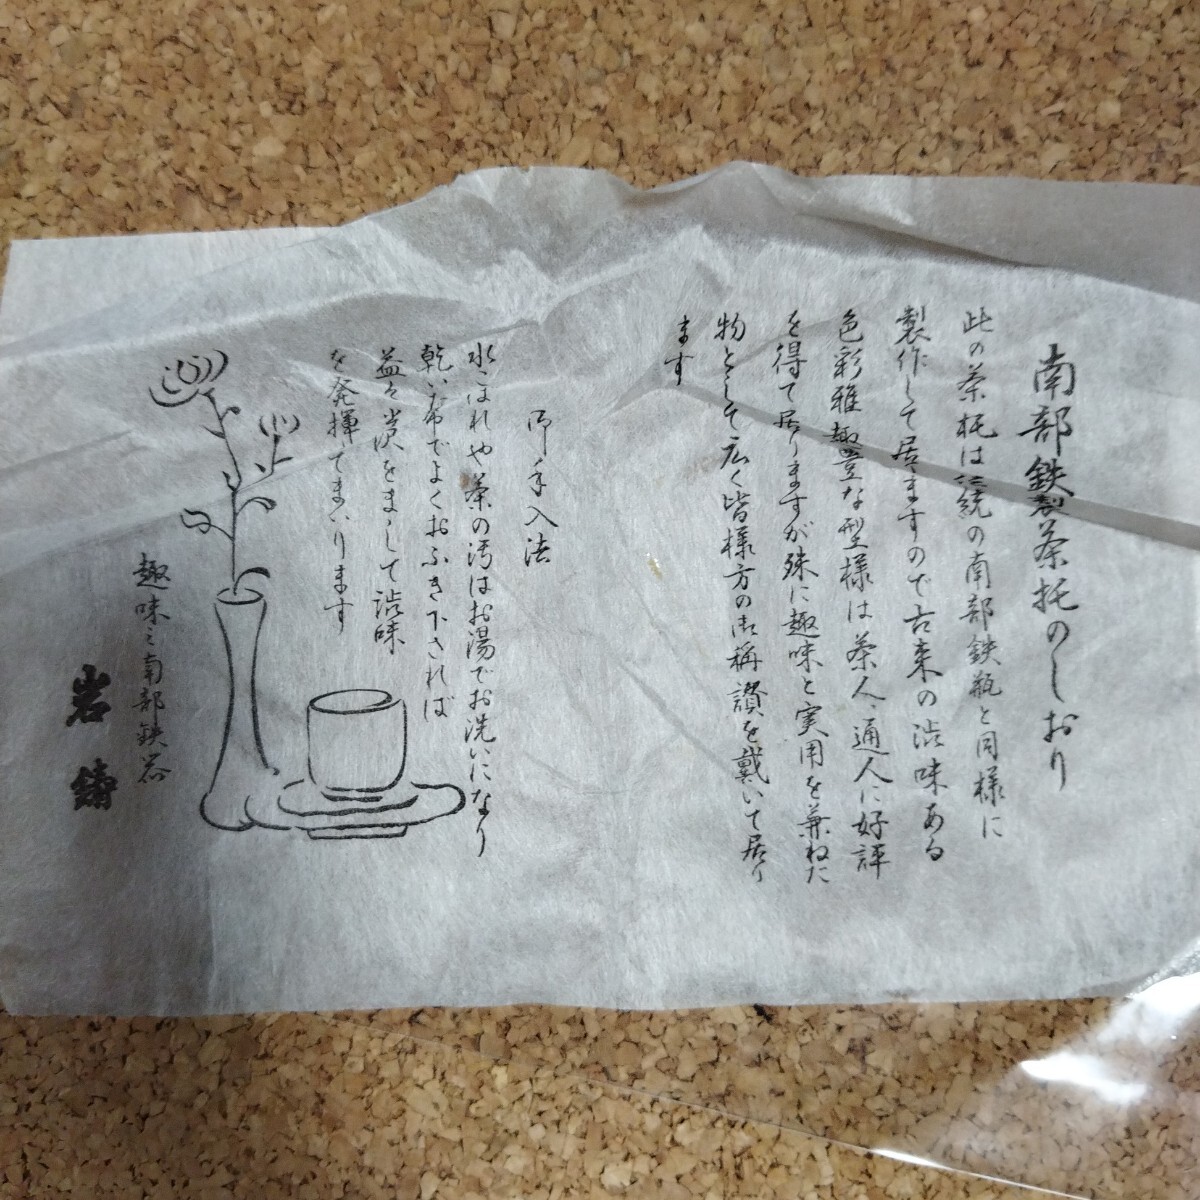 南部鉄製茶托のしおり
此の茶托は伝統の南部鉄瓶と同様に
製作して居ますので古来の渋味ある
色彩雅趣豊な型様は茶人、通人に好評
を得て居りますが殊に趣味と実用を兼ねた
物として広く皆様方の御称讃を戴いて居り
ます
御手入法
水こぼれや茶の汚はお湯でお洗いになり
乾いた布でよくおふき下されば
益々光沢をまして渋味
を発揮てまいります
趣味之南部鉄器
岩鋳